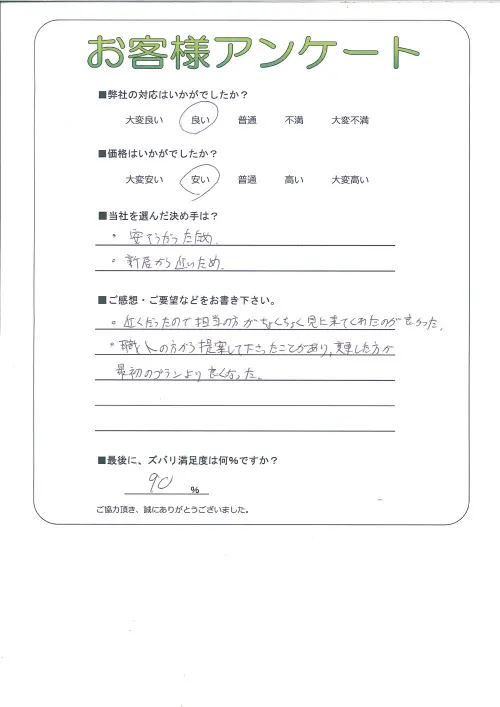 お客様アンケート
■弊社の対応はいかがでしたか？
大変良い 良い 普通 不満 大変不満
■価格はいかがでしたか？
大変安い 安い 普通 高い 大変高い
■当社を選んだ決め手は？
。安そうだったため.
。新居から近いため.
■ご感想・ご要望などをお書き下さい。
。近くだったので担当の方がちょくちょく見に来てくれたのが良かった.
。職人の方から提案して下さったことがあり,変更した方が
最初のプランより良くなった。
■最後に、ズバリ満足度は何%ですか？
90 %
ご協力頂き、誠にありがとうございました。